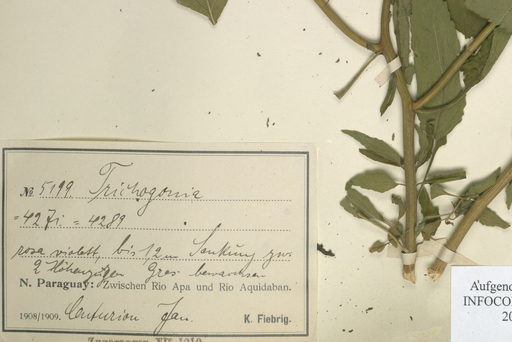 № 5199 Trichogonia
= 427i = 4289
rosa violett bis 1,2 m Senkung zw.
2 Höhenzügen Gras bewachsen
N. Paraguay: Zwischen Rio Apa und Rio Aquidaban.
1908/1909. Centurion Jan. K. Fiebrig.
Aufgeno
INFOCO
20